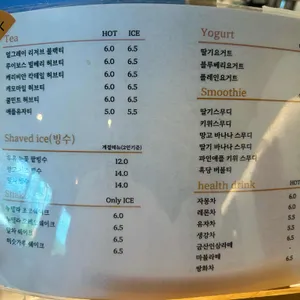 Tea HOT ICE
얼그레이 리저브 블랙티 6.0 6.5
루이보스 빌베리 허브티 6.0 6.5
캐리비안 칵테일 허브티 6.0 6.5
캐모마일 허브티 6.0 6.5
쿨민트 허브티 6.0 6.5
애플유자티 5.0 5.5
Shaved ice(빙수) 계절메뉴(2인기준)
12.0
14.0
14.0
Only ICE
6.0
6.5
6.5
6.5
Yogurt
딸기요거트
블루베리요거트
플레인요거트
Smoothie
딸기스무디
키위스무디
망고 바나나 스무디
딸기 바나나 스무디
파인애플 키위 스무디
흑당 버블티
health drink HO
자몽차 6.0
레몬차 6.0
유자차 5.5
생강차 6.0
금산인삼라떼 6.5
마물라떼 6.5
쌍화차 6.5